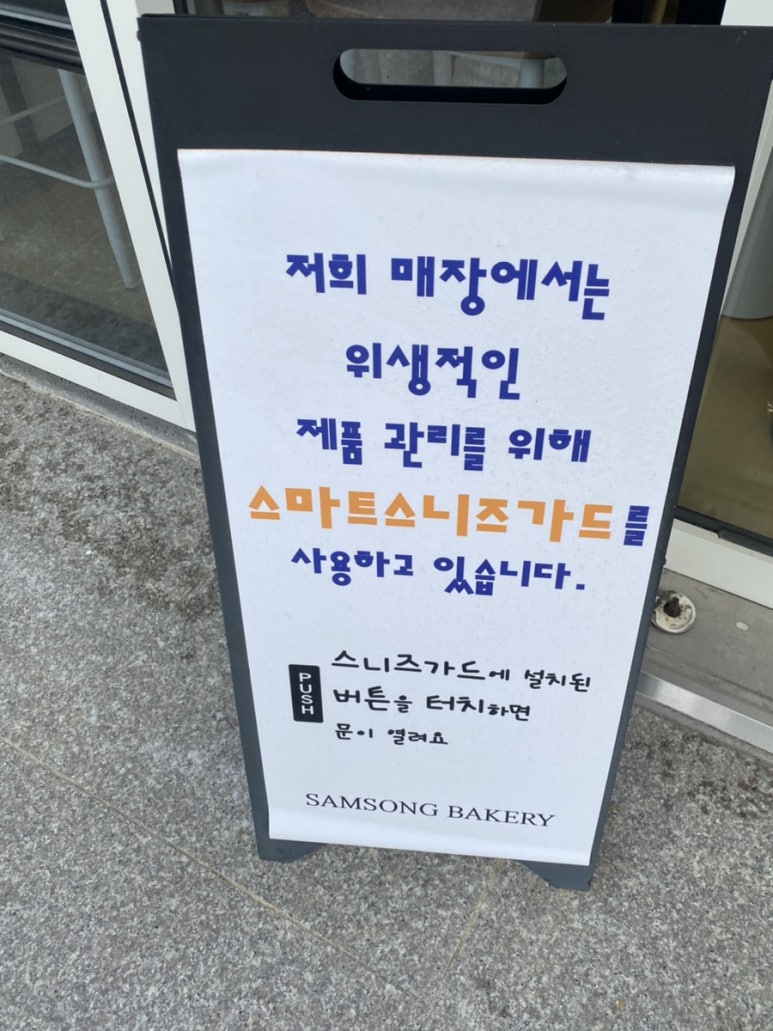 저희 매장에서는
위생적인
제품 관리를 위해
스마트스니즈가드를
사용하고 있습니다.
PUSH
스니즈가드에 설치된
버튼을 터치하면
문이 열려요
SAMSONG BAKERY